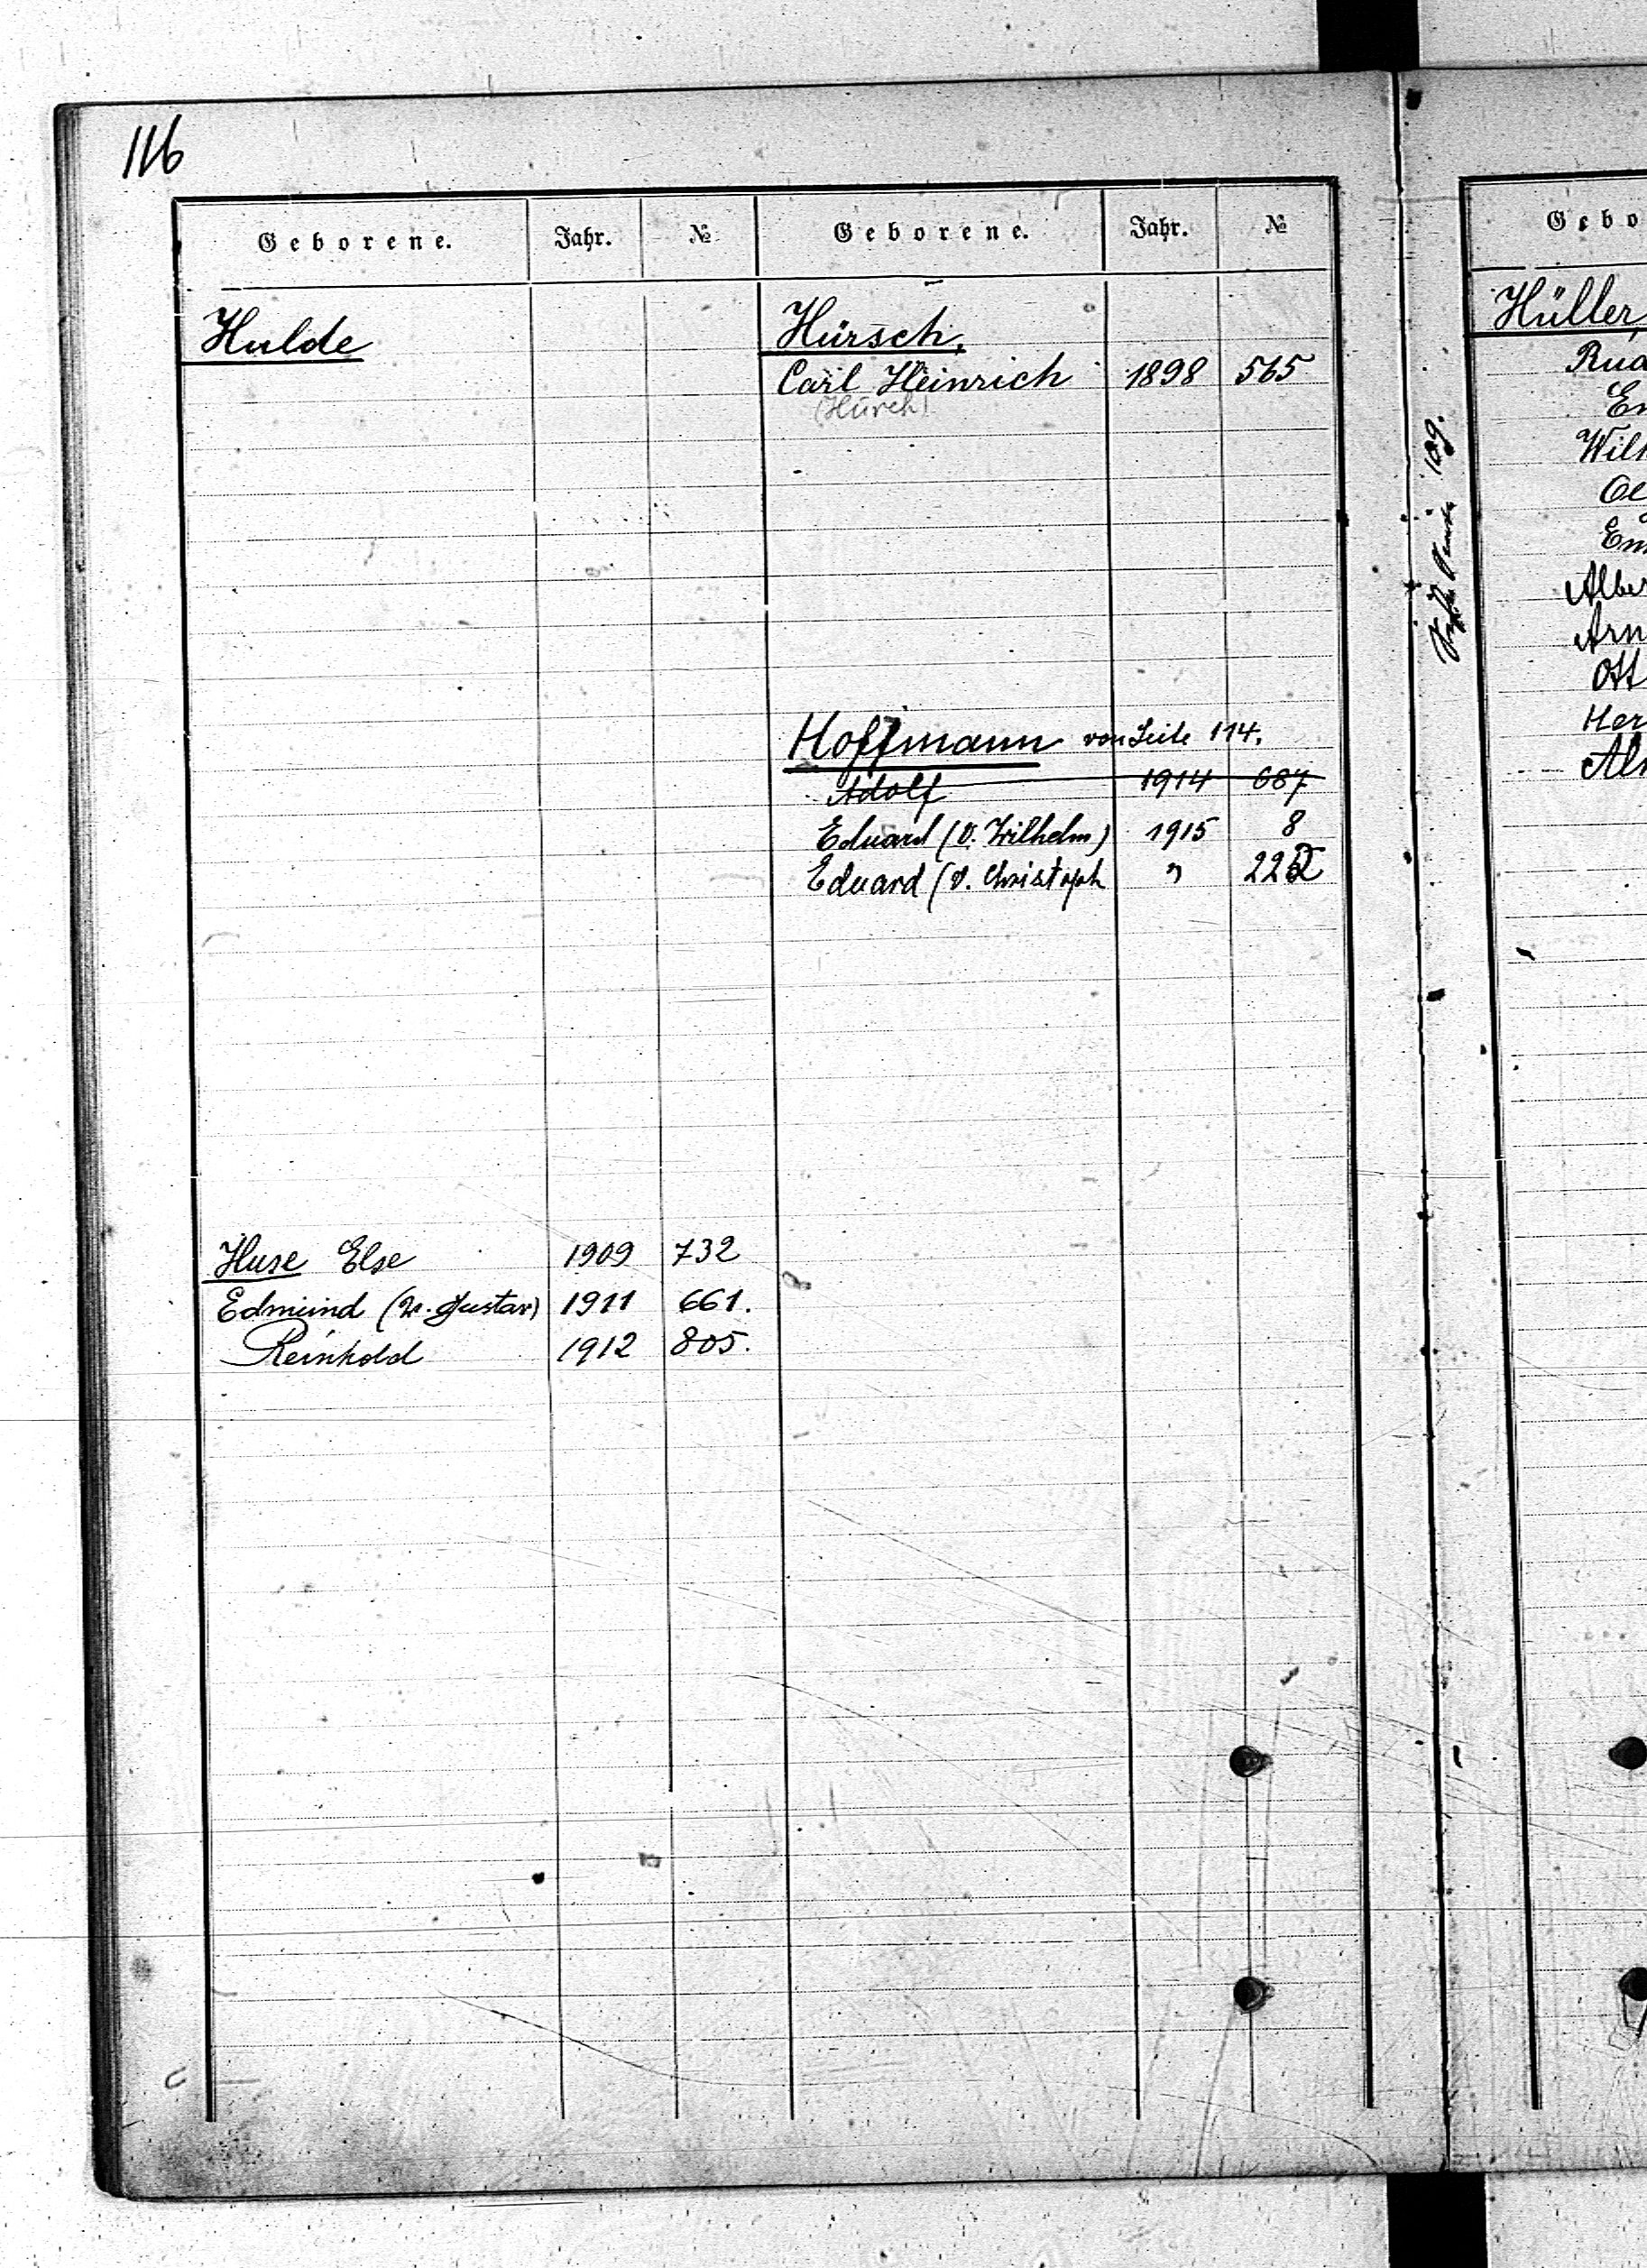 116
Geborene. Jahr. № Geborene. Jahr. №
Hulde
Huse Else 1909 732
Edmund (V. Gustav) 1911 661.
Reinhold 1912 805.
Hürsch,
Carl Heinrich 1898 565
(Hürch)
Hoffmann von Seite 114.
Adolf 1914 687
Eduard (V. Wilhelm) 1915 8
Eduard (V. Christoph " 
109.
Gebo
Hüller,
Rud
Em
Wilh
Em
Alber
Arn
Ott
Her